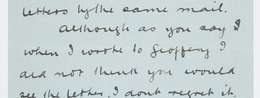 letters by the same mail.
Although as you say I
when I wrote to Geoffery I
did not think you would
see the letter. I dont regret it.